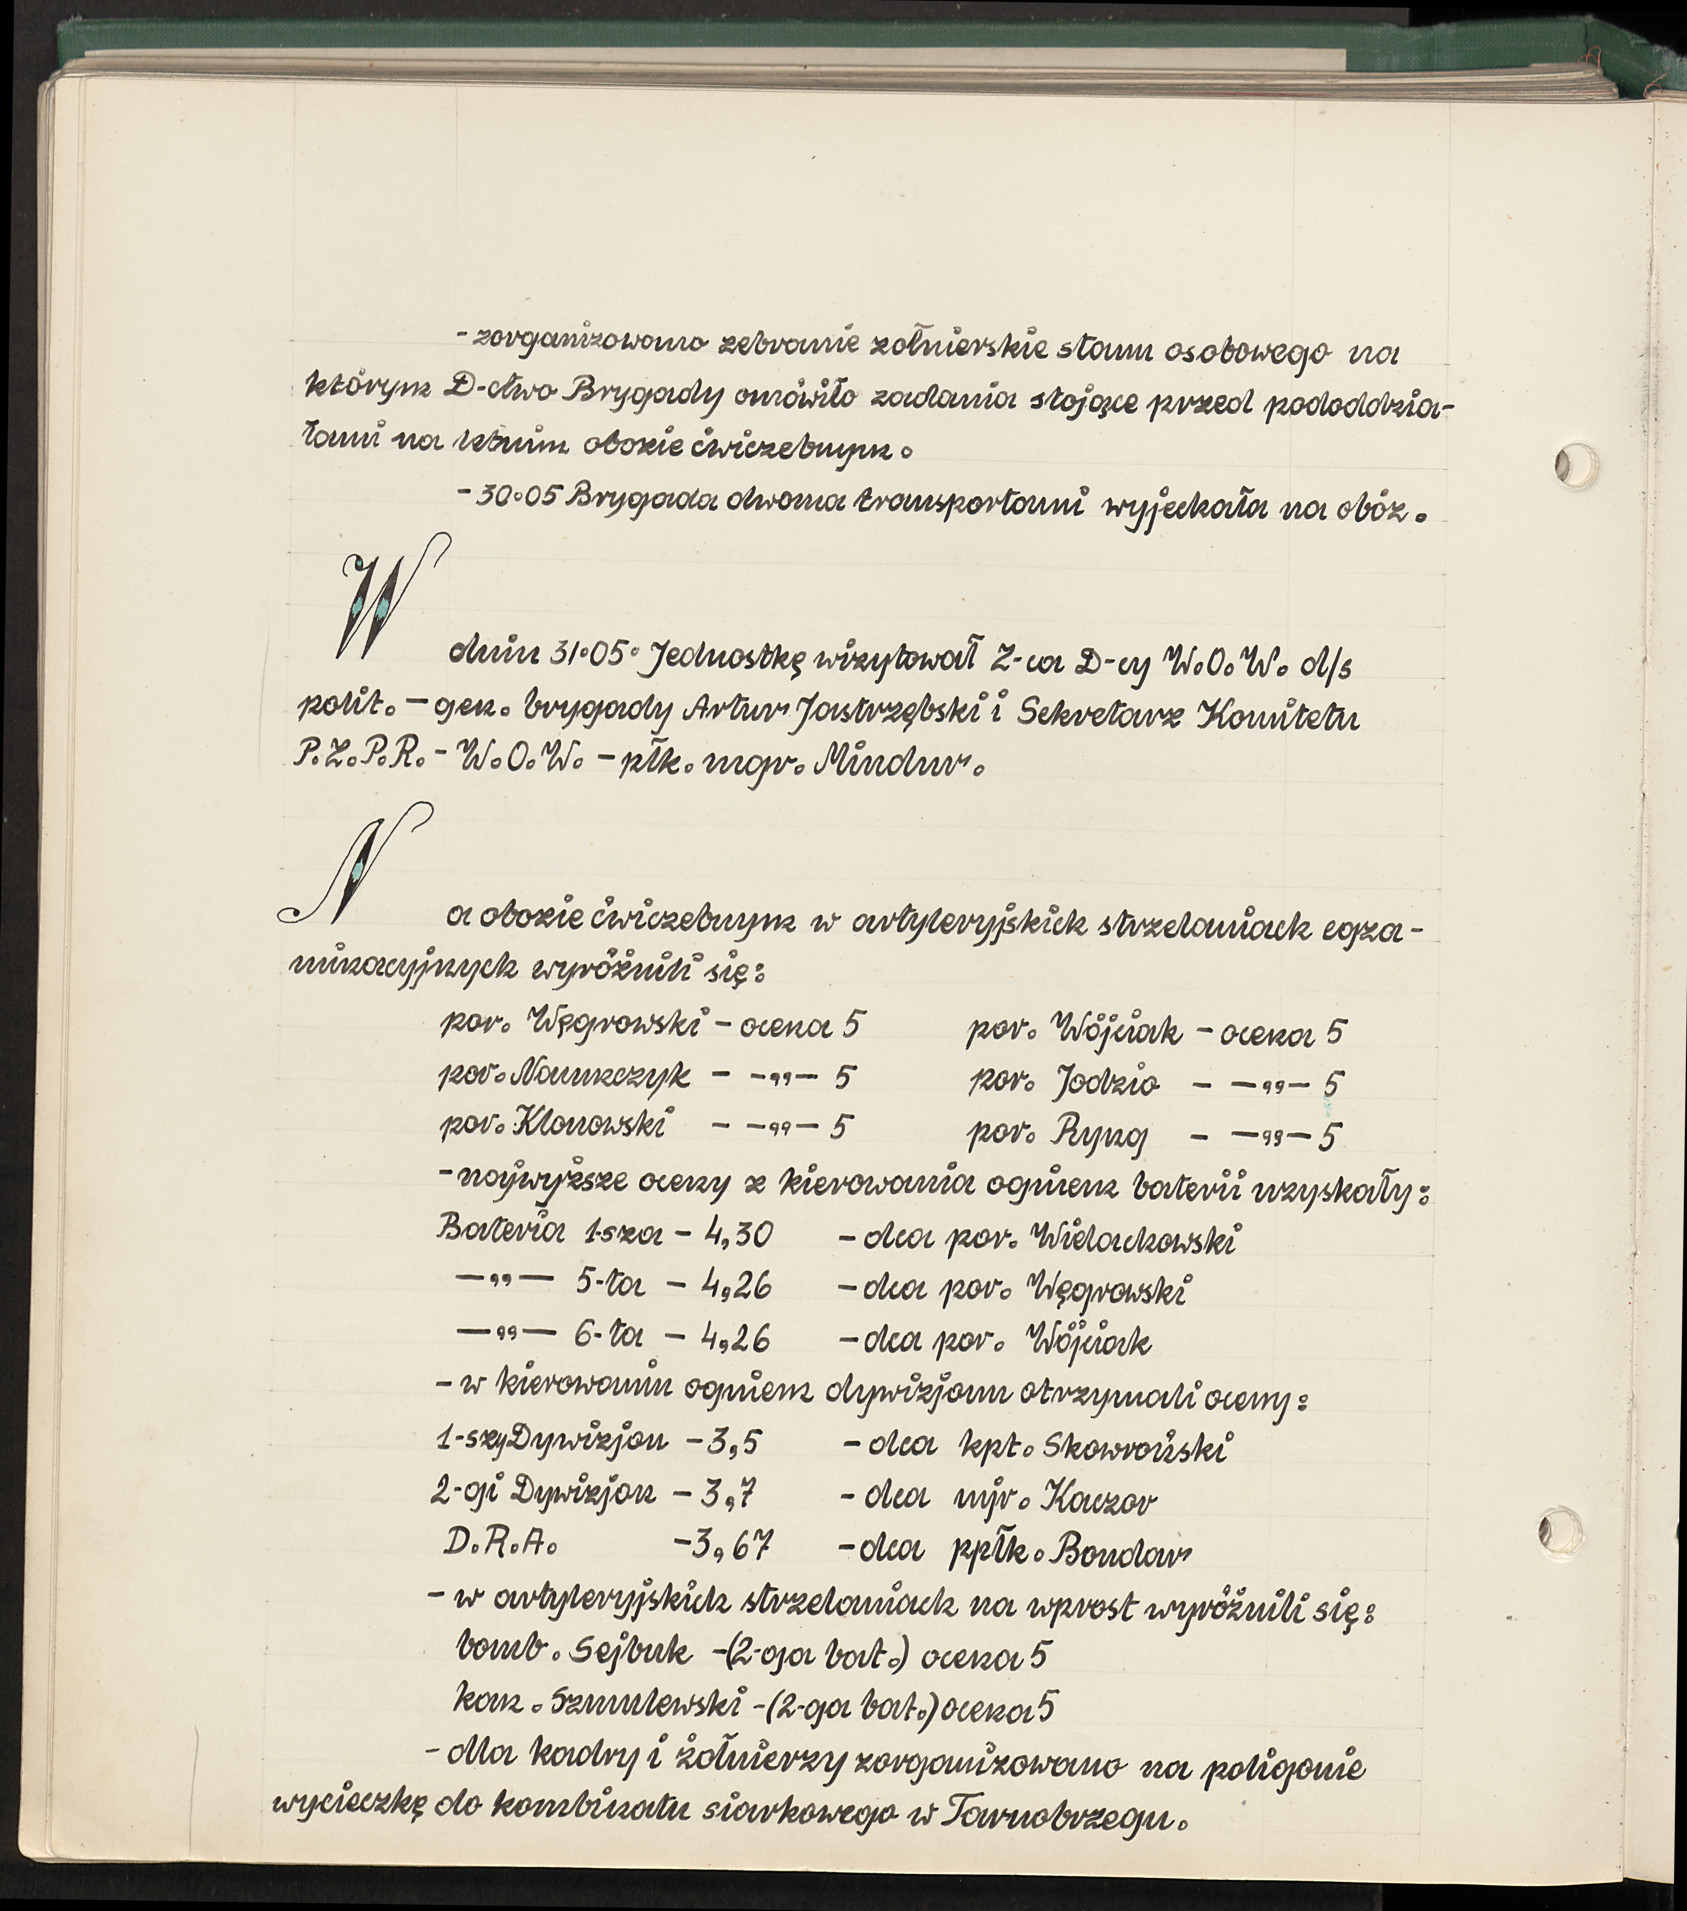 - zorganizowano zebranie żołnierskie stanu osobowego na
którym D-ctwo Brygady omówiło zadania stojące przed pododdzia-
łami na letnim obozie ćwiczebnym.
- 30.05 Brygada dwoma transportami wyjechała na obóz.
W dniu 31.05. Jednostkę wizytował Z-ca D-cy W.O.W. d/s
polit. - gen. brygady Artur Jastrzębski i Sekretarz Komitetu
P.Z.P.R. - W.O.W. - płk. mgr. Mindur.
Na obozie ćwiczebnym w artyleryjskich strzelaniach egza-
minacyjnych wyróżnili się:
por. Węgrowski - ocena 5 por. Wójciak - ocena 5
por. Naumczyk - -„- 5 por. Jodzio - -„- 5
por. Klonowski - -„- 5 por. Ryng - -„- 5
- najwyższe oceny z kierowania ogniem baterii uzyskały:
Bateria 1-sza - 4,30 - dca por. Wielachowski
-„- 5-ta - 4,26 - dca por. Węgrowski
-„- 6-ta - 4,26 - dca por. Wójciak
- w kierowaniu ogniem dywizjonu otrzymali oceny:
1-szy Dywizjon - 3,5 - dca kpt. Skowroński
2-gi Dywizjon - 3,7 - dca mjr. Kaczor
D.R.A. - 3,67 - dca ppłk. Bondar
- w artyleryjskich strzelaniach na wprost wyróżnili się:
bomb. Sejbuk - (2-ga bat.) ocena 5
kan. Szmulewski - (2-ga bat.) ocena 5
- dla kadry i żołnierzy zorganizowano na poligonie
wycieczkę do kombinatu siarkowego w Tarnobrzegu.